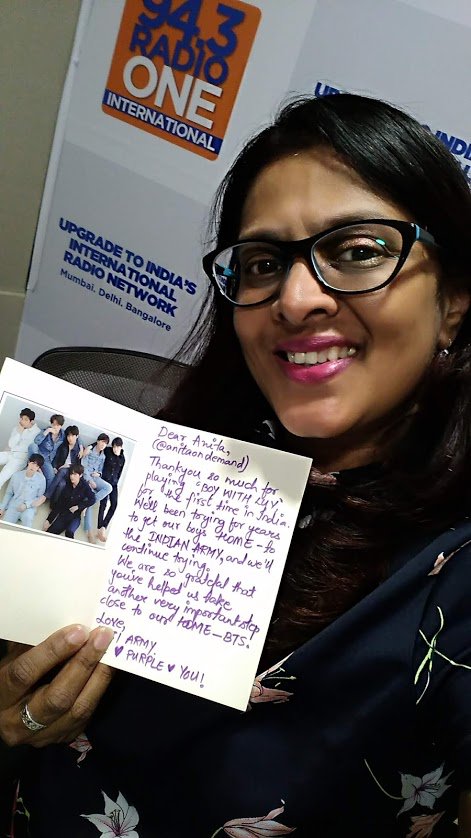 94.3
RADIO
ONE
INTERNATIONAL
UPGRADE TO INDIA'S
INTERNATIONAL
RADIO NETWORK
Mumbai. Delhi. Bangalore
Dear Anita,
(@anitaondemand)
Thankyou so much for
playing "BOY WITH LUV"
for the first time in India.
We'll been trying for years
to get our boys HOME-to
the INDIAN ARMY, and we'll
continue trying.
We are so grateful that
you've helped us take
another very important step
close to our HOME-BTS.
Love,
ARMY
♥ PURPLE ♥ YOU!